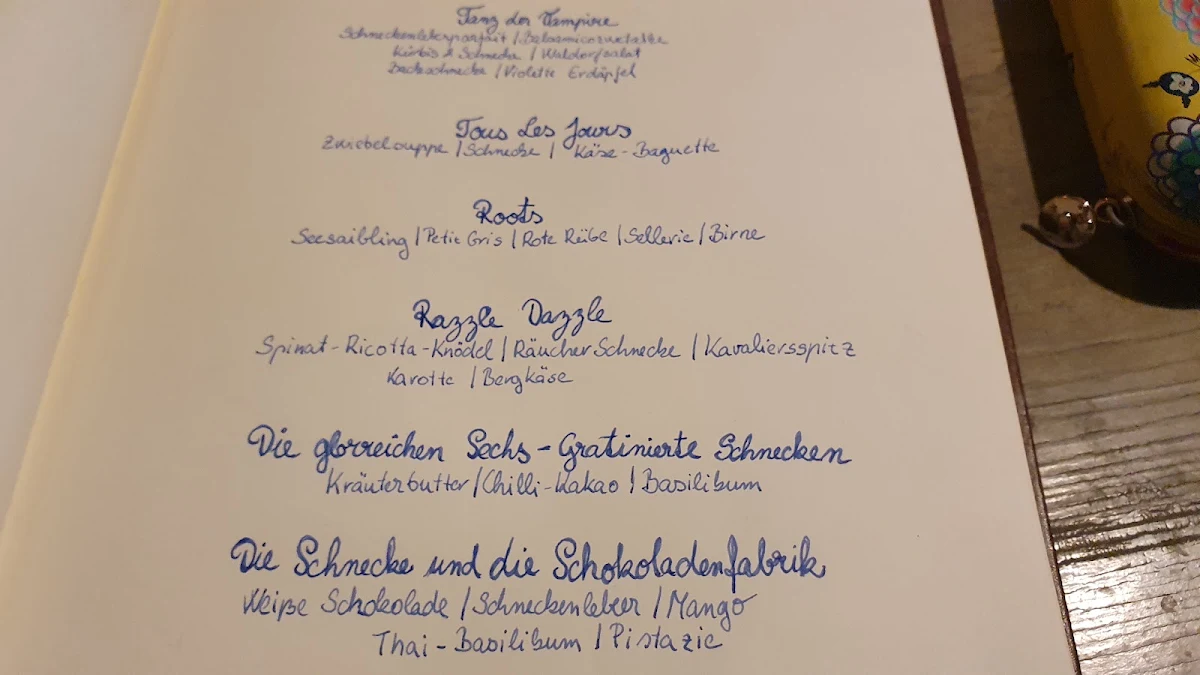 Tanz der Vampire
Schneckenleberparfait | Balsamicozwetschke
Kürbis & Schnecke | Waldorfsalat
Backschnecke | Violette Erdäpfel
Tous Les Jours
Zwiebelsuppe | Schnecke | Käse-Baguette
Roots
Seesaibling | Petit Gris | Rote Rübe | Sellerie | Birne
Razzle Dazzle
Spinat-Ricotta-Knödel | RäucherSchnecke | Kavaliersspitz
Karotte | Bergkäse
Die glorreichen Sechs - Gratinierte Schnecken
Kräuterbutter | Chilli-Kakao | Basilibum
Die Schnecke und die Schokoladenfabrik
Weiße Schokolade | Schneckenleber | Mango
Thai-Basilibum | Pistazie